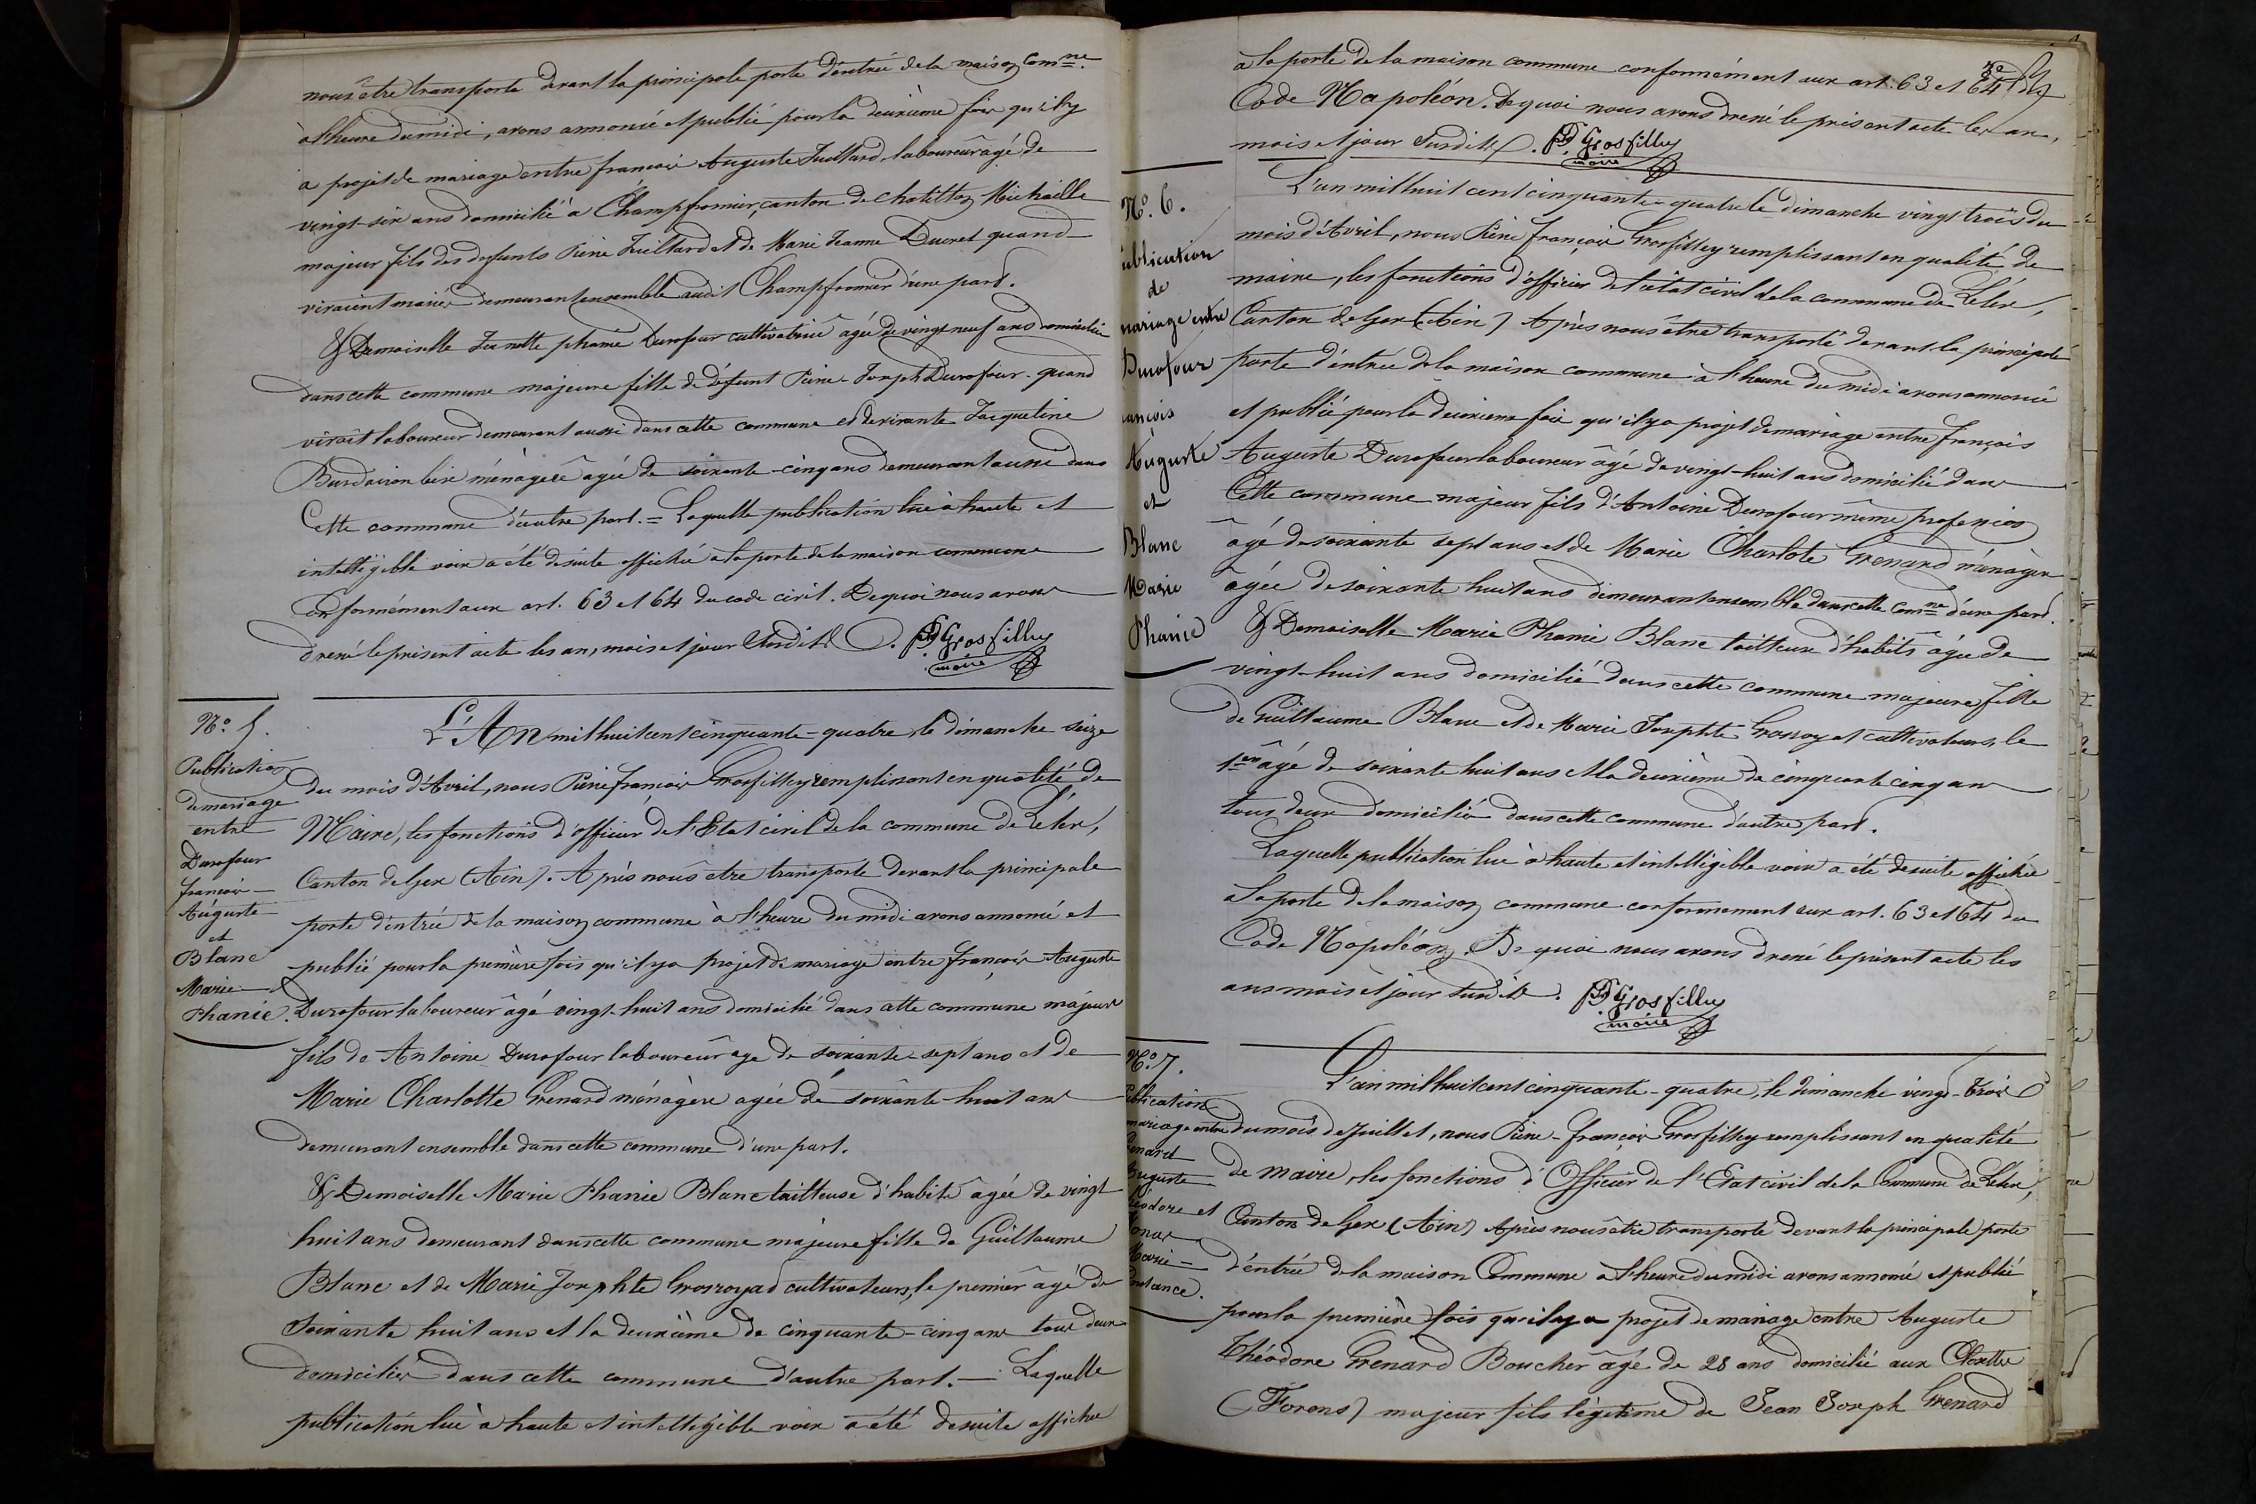 nous être transporté devant la principale porte d'entrée de la maison comne
à l'heure du midi, avons annoncé et publié pour la deuxième fois qu'il y
a projet de mariage entre françois Auguste Juillard laboureur âgé de
vingt-six ans domicilié à Champfromier, canton de Chatillon Michaille
majeur fils des defunts Piérre Juillard et de Marie Jeanne Ducret quand
vivaient mariés demeurant ensemble audit Champfromier d'une part.
& Demoiselle Jeanette phanie Durafour cultivatrice âgée de vingt neuf ans domiciliée
dans cette commune majeure fille de défunt Piérre Joseph Durafour quand
vivait laboureur demeurant aussi dans cette commune et de vivante Jacqueline
ménagère âgée de soixante-cinq ans demeurant aussi dans
Cette commune d'autre part. = Laquelle publication lue à haute et
intelligible voix a été desuite affichée a la porte de la maison commune
Conformément aux art. 63 et 64 du code civil. De quoi nous avons
dréssé le présent acte les an, mois et jour susdits. Grosfilley
maire
No. 5.
Publication
de mariage
entre
Durafour
françois
Auguste
et
Blanc
Marie
Phanie.
L'An mil huit cent cinquante-quatre, le dimanche seize
du mois d'Avril, nous Piérre françois Grosfilley remplissant en qualité de
Maire, les fonctions d'officier de l'Etat civil de la commune de Lélex,
Canton de Gex (Ain). Après nous être transporté devant la principale
porte d'entrée de la maison commune à l'heure du midi avons annoncé et
publié pour la première fois qu'il y a projet de mariage entre françois Auguste
Durafour laboureur âgé vingt-huit ans domicilié dans cette commune majeur
fils de Antoine Durafour laboureur âgé de soixante-sept ans et de
Marie Charlotte Grenard ménagère agée de soixante-huit ans
demeurant ensemble dans cette commune d'une part.
& Demoiselle Marie Phanie Blanc tailleuse d'habits âgée de vingt
huit ans demeurant dans cette commune majeure fille de Guillaume
Blanc et de Marie Josephte Grosroyad cultivateurs, le premier âgé de
Soixante huit ans et la deuxième de cinquante-cinq ans tous deux
domiciliés dans cette commune d'autre part. — Laquelle
publication lue à haute et intelligible voix a été desuite affichée
a la porte de la maison commune conformément aux art. 63 et 64 du
Code Napoléon. De quoi nous avons dréssé le présent acte les an,
mois et jour susdits. Grosfilley
maire
No. 6.
ublication
de
mariage entre
Durafour
ançois
Auguste
et
Blanc
Marie
Phanie
L'an mil huit cent cinquante-quatre le dimanche vingt trois du
mois d'Avril, nous Piérre françois Grosfilley remplissant en qualité de
maire, les fonctions d'officier de l'état civil de la commune de Lélex,
Canton de Gex (Ain) Après nous être transporté devant la principale
porte d'entrée de la maison commune à l'heure du midi avons annoncé
et publié pour la deuxième fois qu'il y a projet de mariage entre françois
Auguste Durafour laboureur âgé de vingt-huit ans domicilié dans
Cette commune majeur fils d'Antoine Durafour même profession
âgé de soixante sept ans et de Marie Charlote Grenard ménagère
âgée de soixante huit ans demeurant ensemble dans cette comne d'une part.
& Demoiselle Marie Phanie Blanc tailleuse d'habits âgée de
vingt-huit ans domicilié dans cette commune majeure fille
de Guillaume Blanc et de Marie Josephte Grosroyat cultivateurs, le
1er âgé de soixante huit ans et la deuxième de cinquante cinq ans
tous deux domiciliés dans cette commune d'autre part.
Laquelle publication lue à haute et intelligible voix a été desuite affichée
a la porte de la maison commune conformement aux art. 63 et 64 du
Code Napoléon. De quoi nous avons dréssé le présent acte les
ans mois et jour susdits. Grosfilley
maire
No. 7.
ublication
mariage entre
Grenard
Auguste
éodore et
Marie
nstance.
L'an mil huit cent cinquante-quatre, le dimanche vingt-trois
du mois de Juillet, nous Piérre-françois Grosfilley remplissant en qualité
de maire, les fonctions d'Officier de l'Etat civil de la Commune de Lélex,
Canton de Gex (Ain) Après nous être transporté devant la principale porte
d'entrée de la maison Commune à l'heure du midi avons annoncé et publié
pour la première fois qu'il y a projet de mariage entre Auguste
Théodore Grenard Boucher âgé de 28 ans domicilié aux
majeur fils légitime de Jean Joseph Grenard